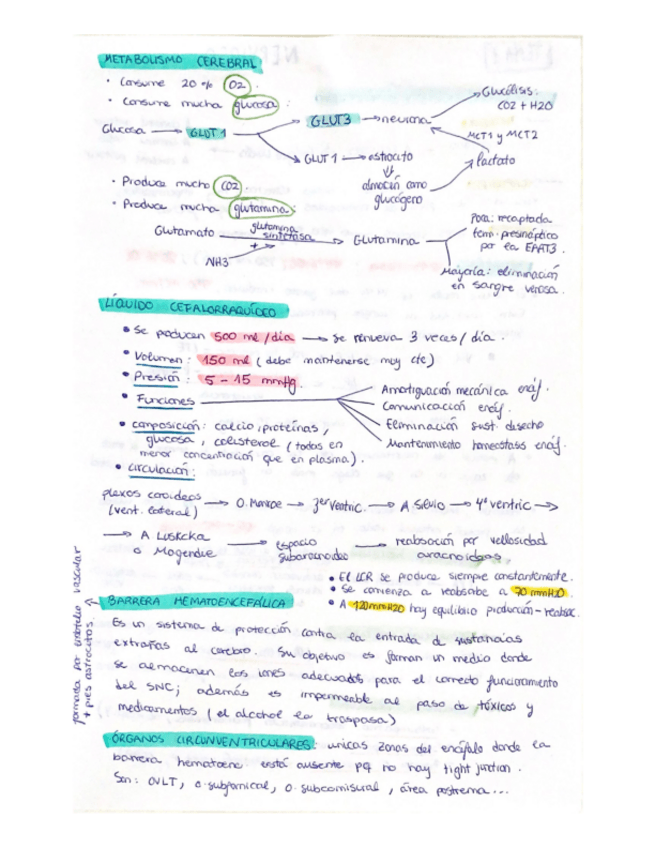 METABOLISMO CEREBRAL
· Consume 20 % O2.
· Consume mucha glucosa:
Glucosa → GLUT 1
GLUT3 → neurona
Glucólisis:
CO2 + H2O
MCT1 y MCT2
GLUT 1 → astrocito
lactato
almacén como
glucógeno
· Produce mucho CO2.
· Produce mucha glutamina:
Glutamato → Glutamina
glutamina
sintetasa
+
NH3
Poca: recaptada
term. presináptico
por la EAAT3.
Mayoría: eliminación
en sangre venosa.
LÍQUIDO CEFALORRAQUÍDEO
• Se producen 500 ml/día → se renueva 3 veces/día.
• Volumen: 150 ml (debe mantenerse muy cte)
• Presión: 5 - 15 mmHg.
• Funciones
Amortiguación mecánica encéf.
Comunicación encéf.
Eliminación sust. desecho
Mantenimiento homeostasis encéf.
• Composición: calcio, proteínas,
glucosa, colesterol (todos en
menor concentración que en plasma).
• Circulación:
plexos coroideos → O. Monroe → 3er Ventric. → A Silvio → 4º ventric →
(vent. lateral)
→ A Luschka → espacio → reabsoción por vellosidad
o Magendie subaracnoideo aracnoideas
• El LCR se produce siempre constantemente.
• Se comienza a reabsorbe a 70 mmH2O.
• A 120mmH2O hay equilibrio producción-reabsoc.
formada por endotelio vascular
+ pies astrocitos.
BARRERA HEMATOENCEFÁLICA
Es un sistema de protección contra la entrada de sustancias
extrañas al cerebro. Su objetivo es forman un medio donde
se almacenen los iones adecuados para el correcto funcionamiento
del SNC; además es impermeable al paso de tóxicos y
medicamentos (el alcohol la traspasa)
ÓRGANOS CIRCUNVENTRICULARES: unicas zonas del encéfalo donde la
barrera hematoenc está ausente pq no hay tight junction.
Son: OVLT, o. subfornical, o. subcomisural, área postrema...